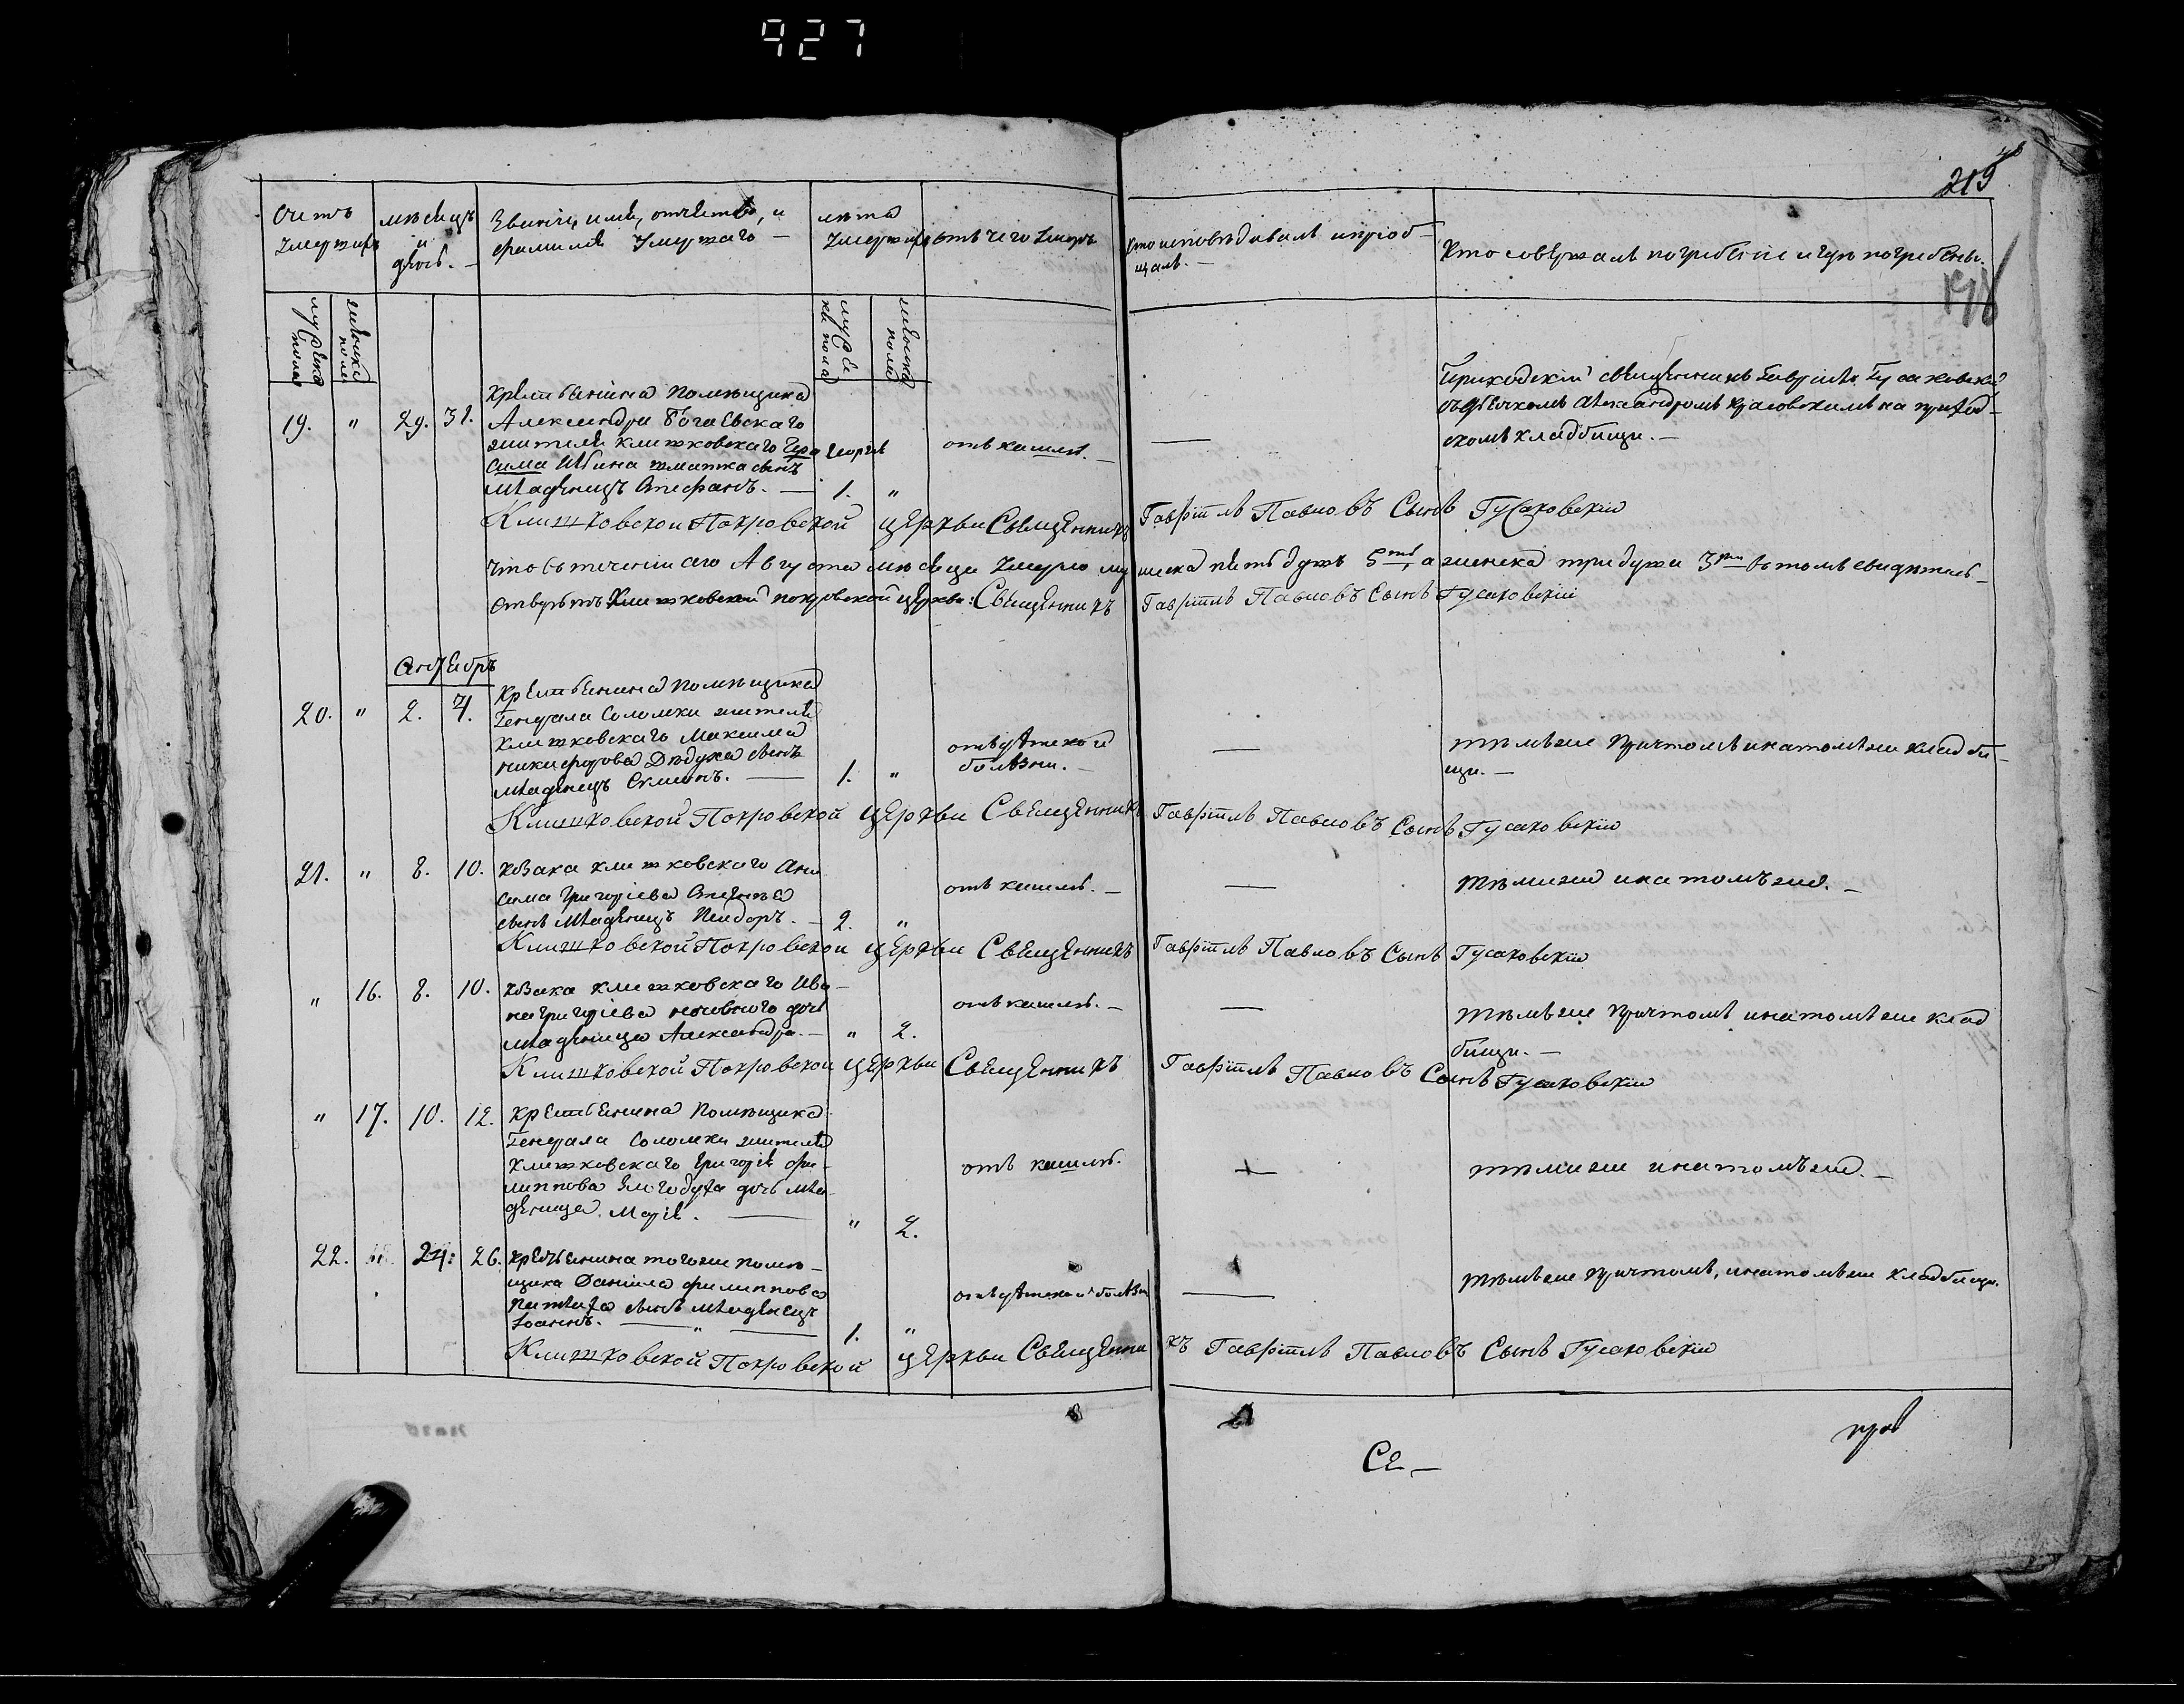 927
219
198
Счетъ умершихъ
мѣсяцъ и день.
Званіе, имя, отчество, и фамилія умершаго
лѣта умершихъ
отъ чего умеръ
Кто исповѣдывалъ и пріобщалъ.
Кто совершалъ погребеніе и гдѣ погребены.
мужеска пола
женска пола
мужеска пола
женска пола
19. " 29. 31.
Крестьянина помѣщика
Александра Богаевскаго
жителя клишковскаго Гера
сима сынъ
младенецъ Стефанъ. — 1. "
отъ кашля. —
Приходскій священникъ Гавріилъ Гусаковскій
съ дьячкомъ Александромъ Красовскимъ на приход-
скомъ кладбищи. —
Клишковской Покровской церкви Священникъ Гавріилъ Павловъ Сынъ Гусаковскій
Что въ теченіи сего Августа мѣсяца умерло мужеска пять душъ 5ть, а женска три души 3ри въ томъ свидѣтель-
ствуетъ Клишковской покровской церкви: Священникъ Гавріилъ Павловъ Сынъ Гусаковскій
20. " 2. 4.
Крестьянина помѣщика
Генерала Соломки жителя
клишковскаго Максима
никифорова Дѣдуха сынъ
младенецъ Симеонъ. — 1. "
отъ дѣтской
болѣзни. —
тѣмъже причтомъ и на томъже кладби-
щи. —
Клишковской Покровской церкви Священникъ Гавріилъ Павловъ Сынъ Гусаковскій
21. " 8. 10.
козака клишковскаго Ани
сима григоріева
сынъ младенецъ — 2. "
отъ кашля. —
тѣмиже и на томъже. —
Клишковской Покровской церкви Священникъ Гавріилъ Павловъ Сынъ Гусаковскій
" 16. 8. 10.
козака клишковскаго Ива-
на григоріева дочь
младеница Александра. — " 2.
отъ кашля. —
тѣмъже причтомъ и на томъже клад
бищи. —
Клишковской Покровской церкви Священникъ Гавріилъ Павловъ Сынъ Гусаковскій
" 17. 10. 12.
Крестьянина помѣщика
Генерала Соломки жителя
клишковскаго григорія фи-
липпова дочь мла-
деница Марія. — " 2.
отъ кашля.
тѣмиже и на томъже. —
22. 24. 26.
Крестьянина тогоже помѣ-
щика Даніила филиппова
сынъ младенецъ
Іоаннъ. — " — 1. "
отъ дѣтской болѣзни
тѣмъже причтомъ, и на томъже кладбищи.
Клишковской Покровской церкви Священникъ Гавріилъ Павловъ Сынъ Гусаковскій